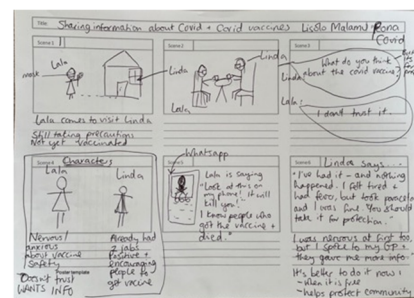 Title Sharing information about Covid + Covid vaccines
Covid
Scene 1
Lala
mask
Linda
Lala comes to visit Linda
Still taking precautions
Not yet vaccinated
Scene 2
Linda
Lala
Scene 3
Linda
What do you think
about the covid vaccine?
Lala:
I don't trust it.
Scene 4 Characters
Lala
Linda
Nervous/
anxious
about vaccine
safety
Doesn't trust
WANTS INFO
Poster template
Already had
2 jabs
Positive +
encouraging
people to
get vaccine
Whatsapp
Scene 5
Lala is saying
"Look at this on
my phone! it will
kill you!
I know people who
got the vaccine +
died."
Scene 6
Linda says...
"I've had it - and nothing
happened. I felt tired +
had fever, but took
and I was fine. You should
take it for protection.
I was nervous at first too,
but I spoke to my +
they gave me more info.
It's better to do it now:
- When it is free
- helps protect community